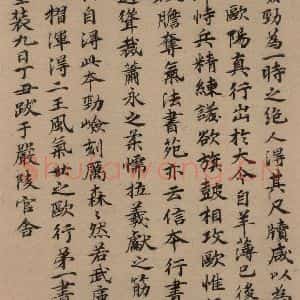 勁為一時之絕人得其尺牘咸以為
歐陽真行出於大令自羊薄已後
恃兵精練議欲旗鼓相攻歐惟
膽奪氣法書苑亦云信本行書
遒聳裁蕭永之柔懦拉羲獻之筋
自得此本勁嶮刻厲森々然若武庫
摺渾得二王風氣世之歐行第一書
裝九日丁丑跋于嚴陵官舍